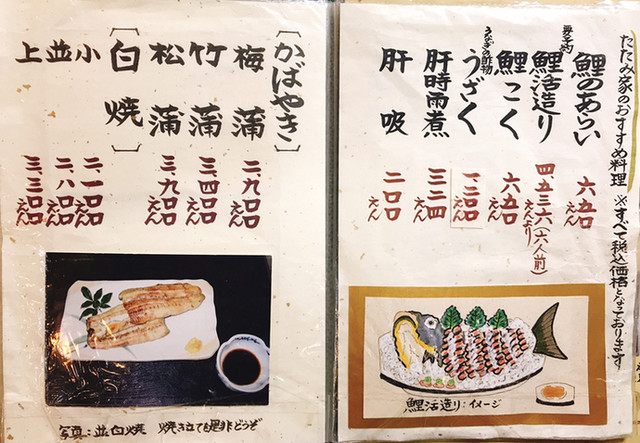 たたみ家のおすすめ料理 ※すべて税込価格となっております
鯉のあらい 六五〇えん
要予約
鯉活造り 四、五三六えんより(六人前)
鯉こく 六五〇えん
うなぎの酢物
うざく 一、二〇〇えん
肝時雨煮 三二四えん
肝吸 二〇〇えん
鯉活造り:イメージ
[かばやき]
梅蒲 二、九〇〇えん
竹蒲 三、四〇〇えん
松蒲 三、九〇〇えん
[白焼]
小 二、一〇〇えん
並 二、八〇〇えん
上 三、三〇〇えん
写真:並白焼 焼き立ても是非どうぞ